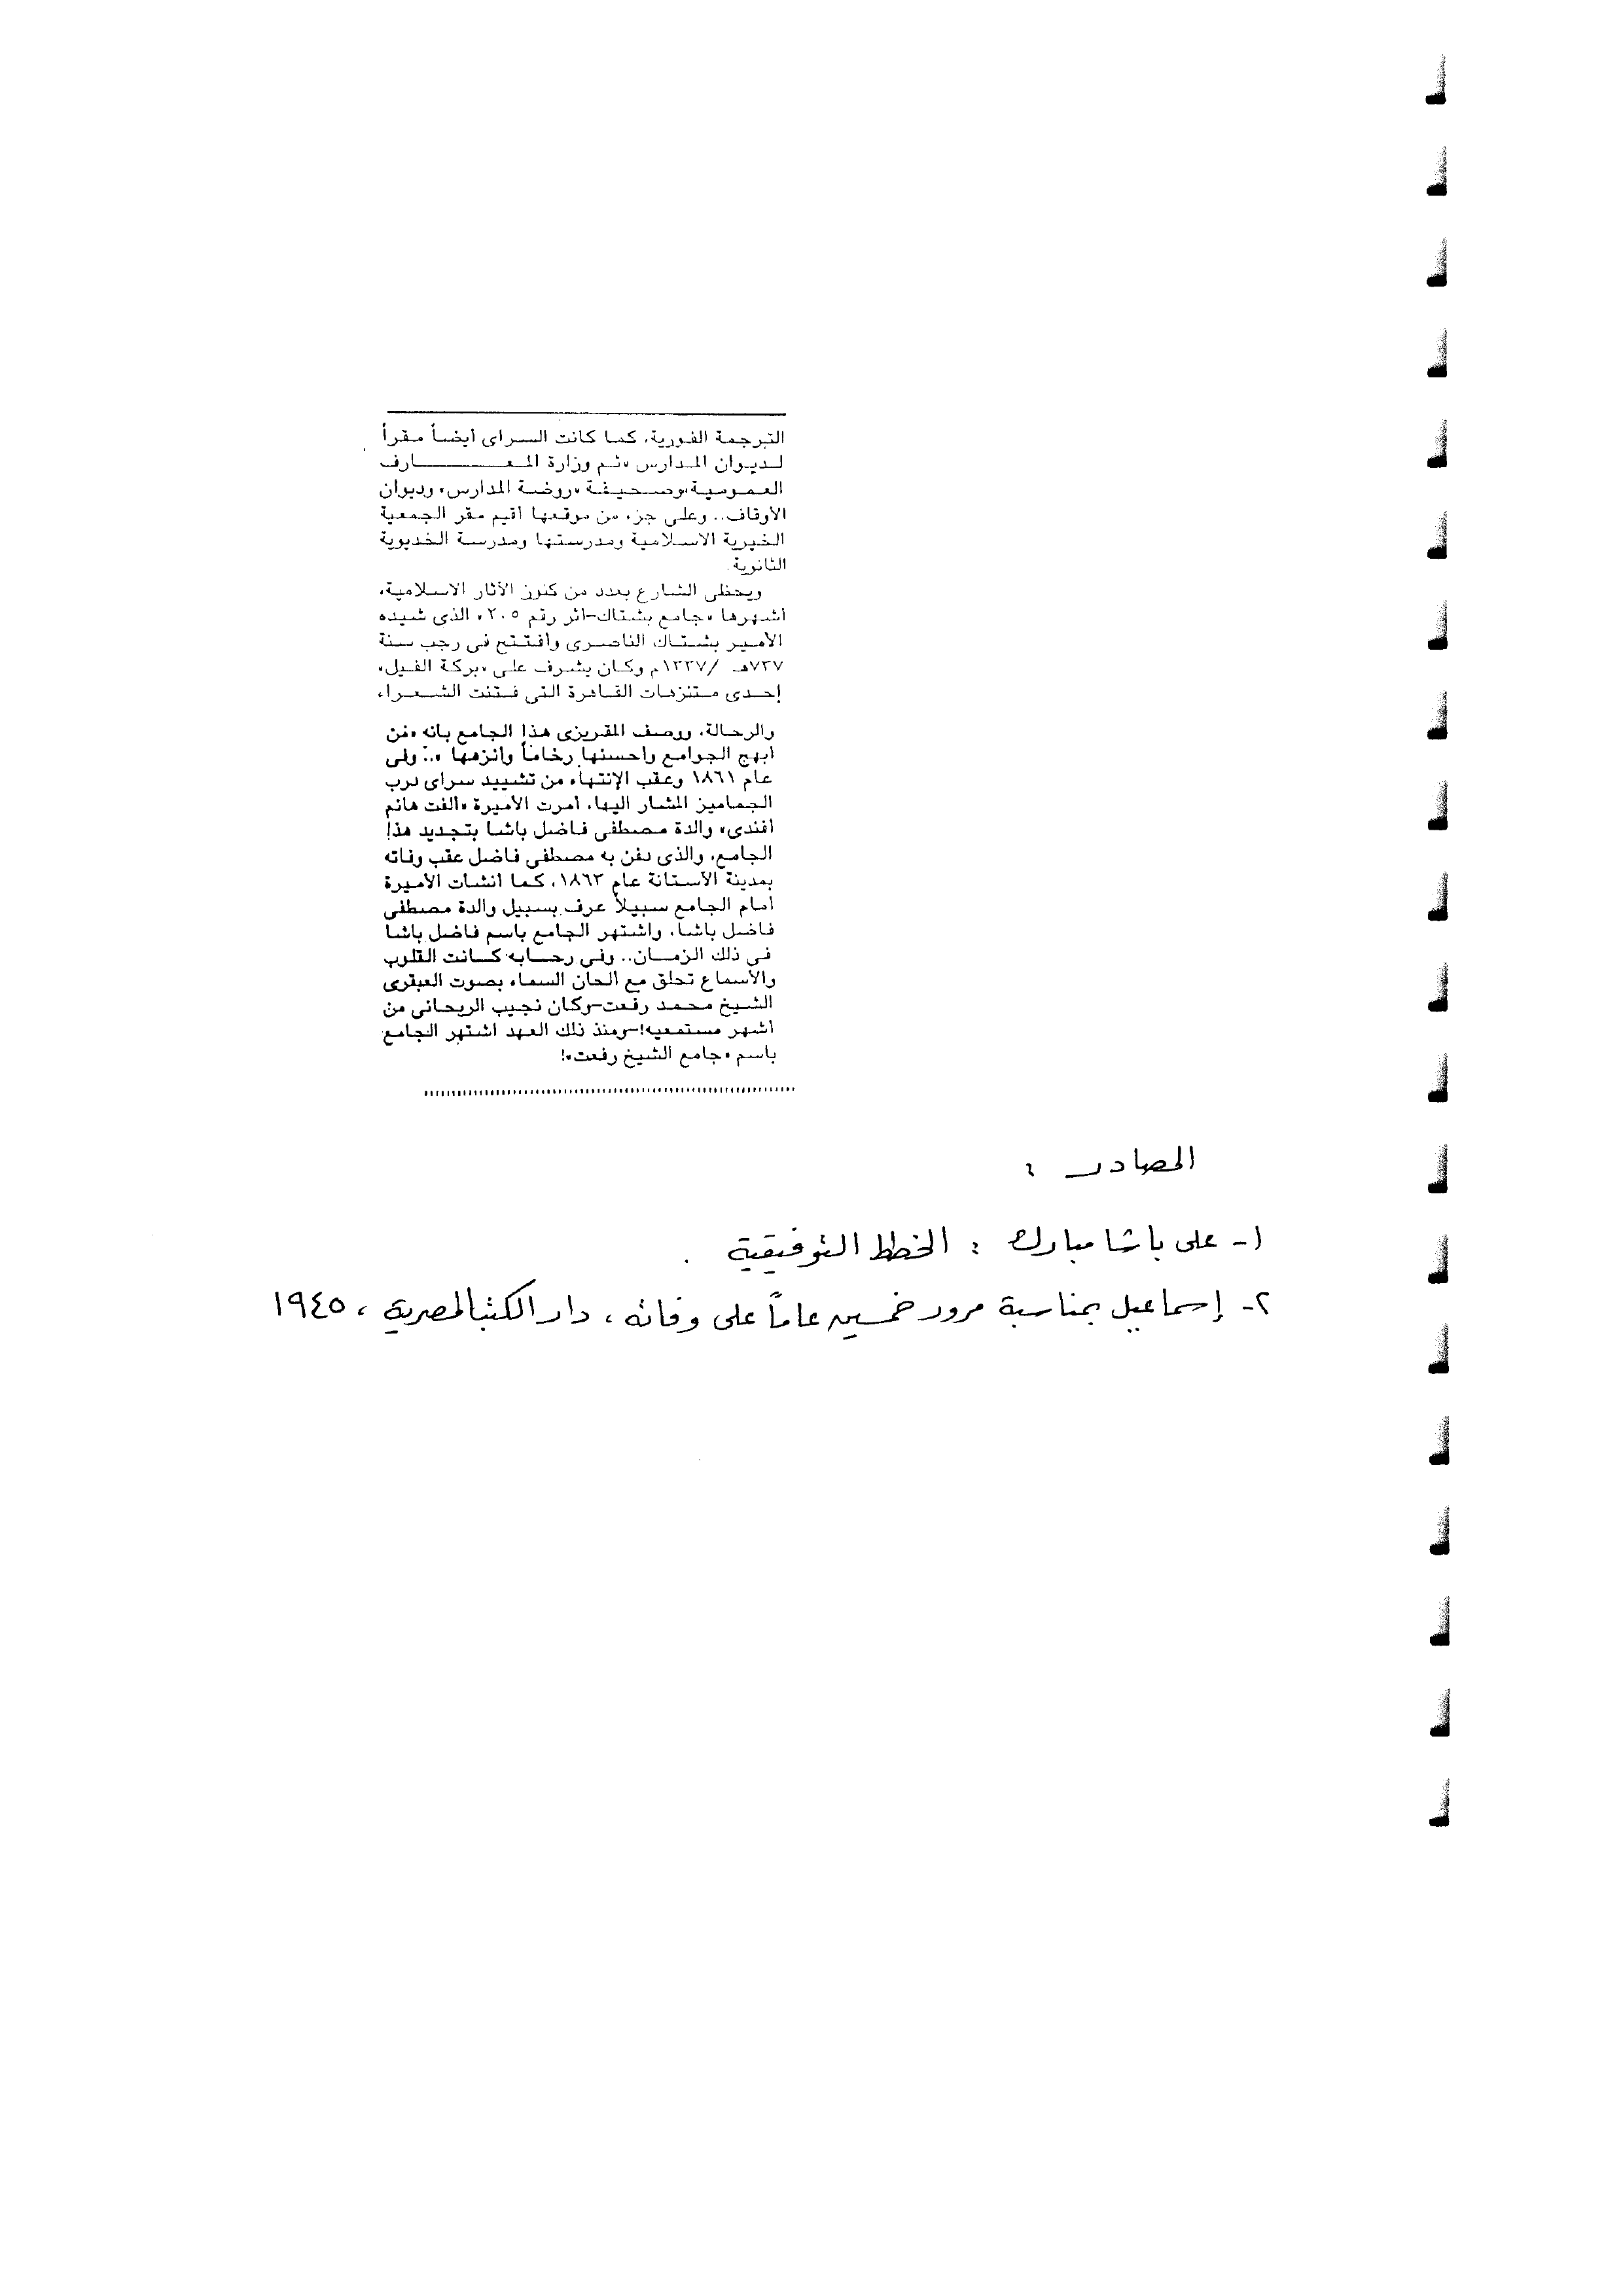 الترجمة الفورية، كما كانت السراى أيضاً مقراً
لديوان المدارس «ثم وزارة المعارف
العمومية»وصحيفة «روضة المدارس» وديوان
الأوقاف.. وعلى جزء من موقعها أقيم مقر الجمعية
الخيرية الاسلامية ومدرستها ومدرسة الخديوية
الثانوية.
ويحظى الشارع بعدد من كنوز الآثار الاسلامية،
أشهرها «جامع بشتاك-اثر رقم ٢٠٥» الذى شيده
الأمير بشتاك الناصرى وأفتتح فى رجب سنة
٧٣٧هـ /١٣٣٧م وكان يشرف على «بركة الفيل»
إحدى متنزهات القاهرة التى فتنت الشعراء
والرحالة، ووصف المقريزى هذا الجامع بانه «من
ابهج الجوامع واحسنها رخاماً وانزهها».. وفى
عام ١٨٦١ وعقب الإنتهاء من تشييد سراى درب
الجماميز المشار اليها، أمرت الأميرة «الفت هانم
افندى» والدة مصطفى فاضل باشا بتجديد هذا
الجامع، والذى دفن به مصطفى فاضل عقب وفاته
بمدينة الآستانة عام ١٨٦٣، كما انشات الأميرة
أمام الجامع سبيلاً عرف بسبيل والدة مصطفى
فاضل باشا، واشتهر الجامع باسم فاضل باشا
فى ذلك الزمان.. وفى رحابه كانت القلوب
والأسماع تحلق مع الحان السماء بصوت العبقرى
الشيخ محمد رفعت-وكان نجيب الريحانى من
اشهر مستمعيه!-ومنذ ذلك العهد اشتهر الجامع
باسم «جامع الشيخ رفعت»!
المصادر :
١- على باشا مبارك : الخطط التوفيقية .
٢- إسماعيل بمناسبة مرور خمسين عاماً على وفاته ، دار الكتب المصرية ، ١٩٤٥